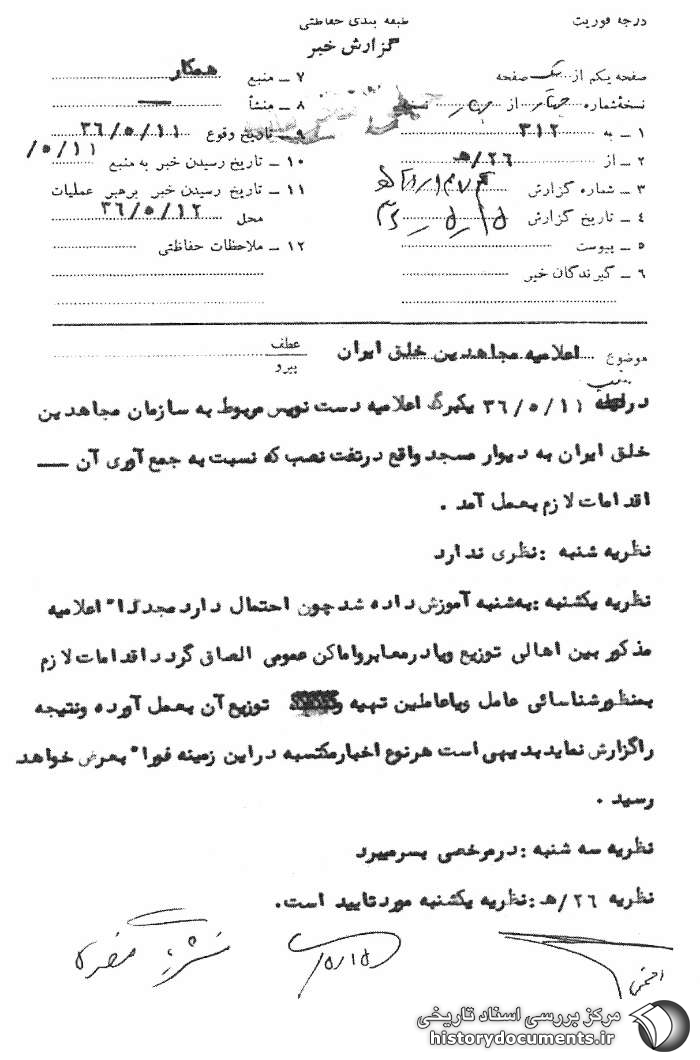 درجه فوریت
طبقه بندی حفاظتی
گزارش خبر
صفحه یکم از یک صفحه
نسخهٔ شماره از نسخه
۱ ــ به ۳۱۲
۲ ــ از ۲۶/هـ
۳ ــ شماره گزارش
۴ ــ تاریخ گزارش
۵ ــ پیوست
۶ ــ گیرندگان خبر
۷ ــ منبع همکار
۸ ــ منشأ —
۹ ــ تاریخ وقوع ۳۶/۵/۱۱
۱۰ ــ تاریخ رسیدن خبر به منبع ۵/۱۱/
۱۱ ــ تاریخ رسیدن خبر برهبر عملیات
محل ۳۶/۵/۱۲
۱۲ ــ ملاحظات حفاظتی
موضوع اعلامیه مجاهدین خلق ایران
عطف
پیرو
۳۶/۵/۱۱ یکبرگ اعلامیه دست نویس مربوط به سازمان مجاهدین
خلق ایران به دیوار مسجد واقع درتفت نصب که نسبت به جمع آوری آن —
اقدامات لازم بعمل آمد .
نظریه شنبه :نظری ندارد
نظریه یکشنبه :به شنبه آموزش داده شد چون احتمال دارد مجددا" اعلامیه
مذکور بین اهالی توزیع ویادرمعابرواماکن عمومی الصاق گردد اقدامات لازم
بمنظورشناسائی عامل ویاعاملین تهیه و توزیع آن بعمل آورده ونتیجه
راگزارش نماید بدیهی است هرنوع اخبارمکتسبه دراین زمینه فورا" بعرض خواهد
رسید .
نظریه سه شنبه :درمرخصی بسرمیبرد
نظریه ۲۶/هـ :نظریه یکشنبه موردتایید است.
۵/۱۵
مرکز بررسی اسناد تاریخی
historydocuments.ir